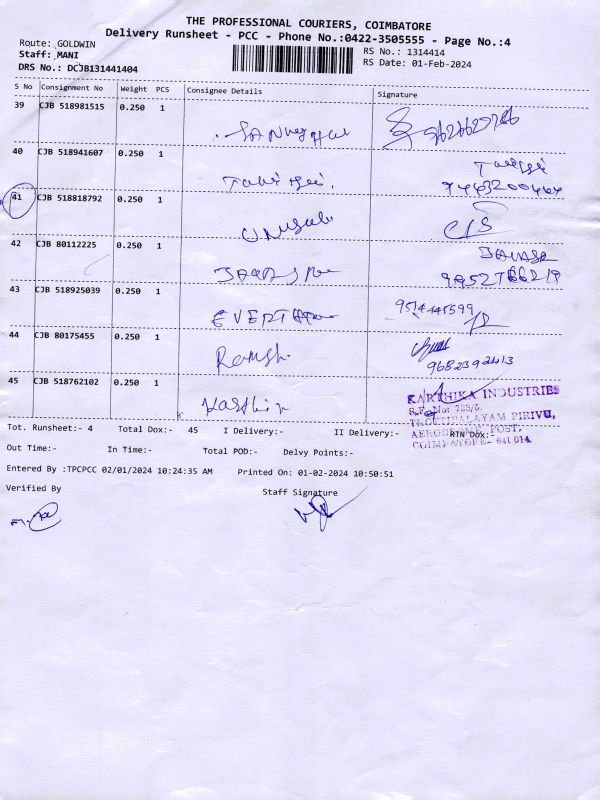 THE PROFESSIONAL COURIERS, COIMBATORE
Delivery Runsheet - PCC - Phone No.:0422-3505555 - Page No.:4
Route: GOLDWIN
RS No.: 1314414
Staff: MANI
RS Date: 01-Feb-2024
DRS No.: DCJB131441404
S No Consignment No Weight PCS Consignee Details Signature
39 CJB 518981515 0.250 1
40 CJB 518941607 0.250 1
41 CJB 518818792 0.250 1
42 CJB 80112225 0.250 1
43 CJB 518925039 0.250 1
9514445599
44 CJB 80175455 0.250 1
Ramesh
9682392413
45 CJB 518762102 0.250 1
Karthik
KARTHIKA INDUSTRIES
S.F. No: 783/5,
PIRIVU,
AERODROME POST,
COIMBATORE - 641 014.
Tot. Runsheet:- 4 Total Dox:- 45 I Delivery:- II Delivery:- RTN Dox:-
Out Time:- In Time:- Total POD:- Delvy Points:-
Entered By :TPCPCC 02/01/2024 10:24:35 AM Printed On: 01-02-2024 10:50:51
Verified By Staff Signature